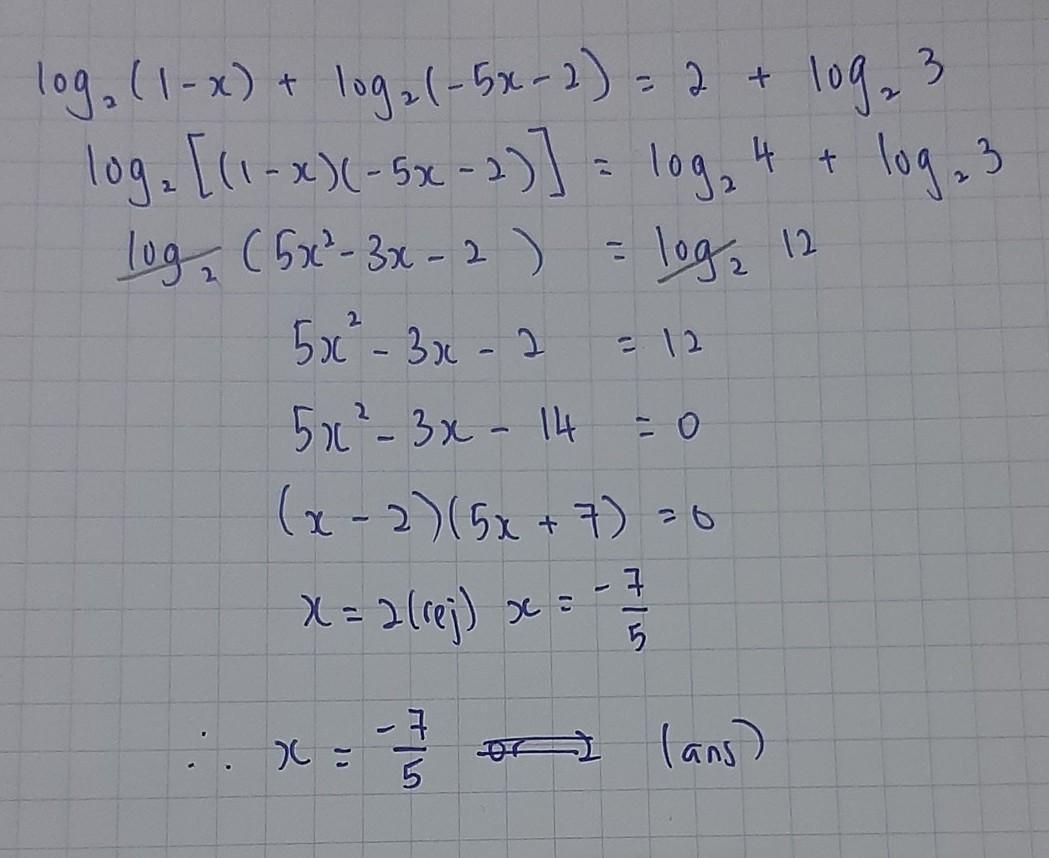 log₂(1-x) + log₂(-5x-2) = 2 + log₂ 3
log₂[(1-x)(-5x-2)] = log₂ 4 + log₂ 3
log₂ (5x²-3x-2) = log₂ 12
5x² - 3x - 2 = 12
5x² - 3x - 14 = 0
(x - 2)(5x + 7) = 0
x = 2(rej) x = -7/5
∴ x = -7/5 (ans)